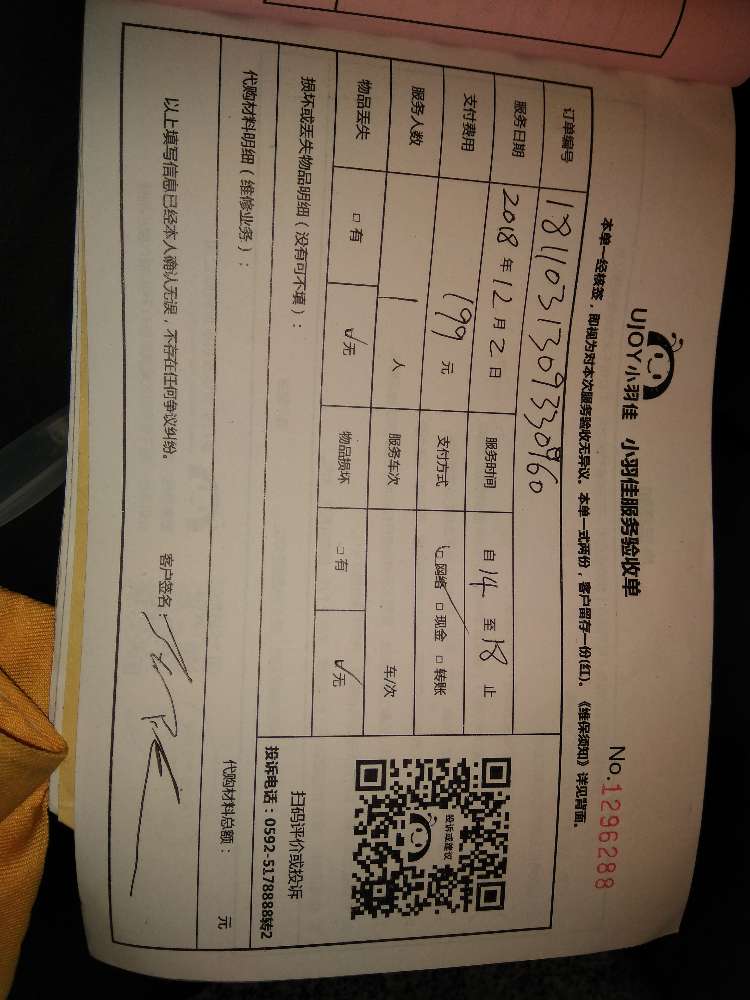 UJOY小羽佳 小羽佳服务验收单
No.1296288
本单一经核签，即视为对本次服务验收无异议。本单一式两份，客户留存一份(红)。《维保须知》详见背面。
订单编号 1811031309330960
服务日期 2018年12月2日 服务时间 自14至18止
支付费用 199元 支付方式 □网络 □现金 □转账
服务人数 1人 服务车次 车/次
物品丢失 □有 ☑无 物品损坏 □有 ☑无
损坏或丢失物品明细（没有可不填）：
投诉或建议
扫码评价或投诉
投诉电话：0592-5178888转2
代购材料明细（维修业务）： 代购材料总额： 元
以上填写信息已经本人确认无误，不存在任何争议纠纷。 客户签名：